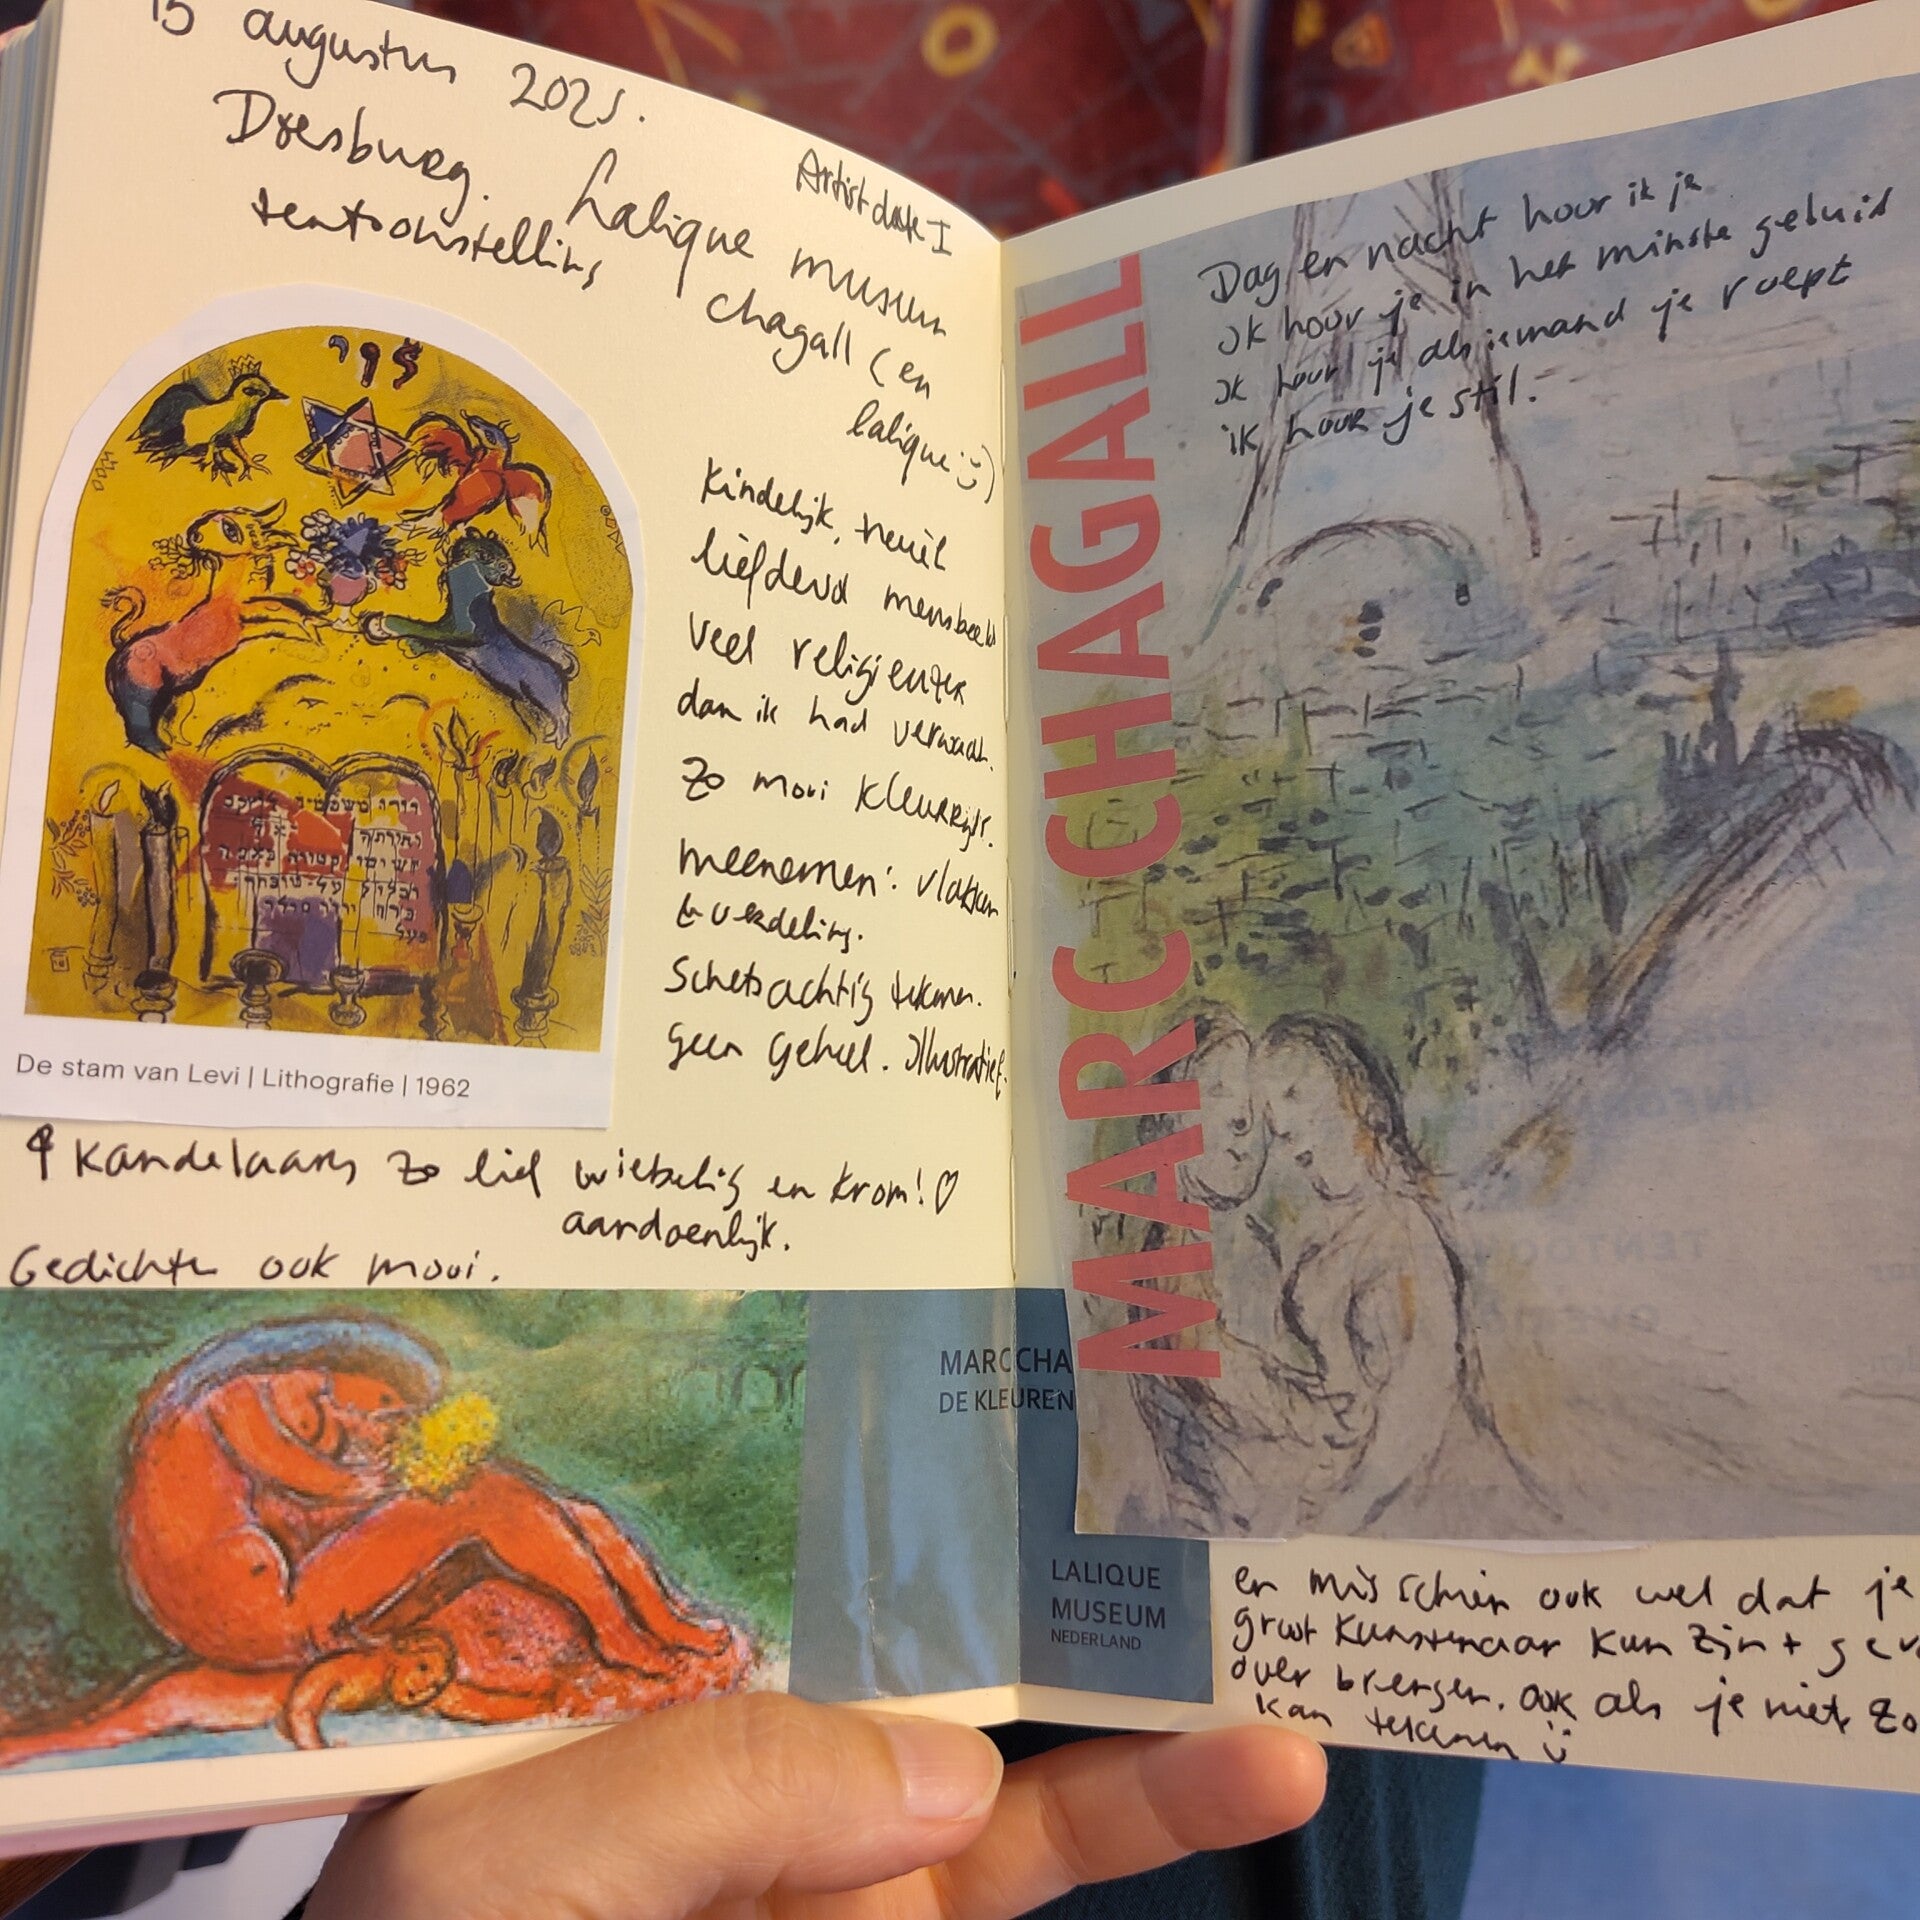 15 augustus 2025.
Doesburg. Lalique museum
Artist date I
tentoonstelling chagall (en
lalique :)
Kinderlijk, naïef
liefdevol mensbeeld
veel religieuzer
dan ik had verwacht.
Zo mooi kleurrijk.
meenemen: vlakken
verdeling.
Schetsachtig tekenen.
geen geheel. Illustratief.
לוי
De stam van Levi | Lithografie | 1962
Kandelaars zo lief wiebelig en krom! ♡
aandoenlijk.
Gedichten ook mooi.
MARC CHA
DE KLEUREN
LALIQUE
MUSEUM
NEDERLAND
MARC CHAGALL
Dag en nacht hoor ik je
ik hoor je in het minste geluid
ik hoor je als iemand je roept
ik hoor je stil.
en misschien ook wel dat je
groot kunstenaar kun zijn +
over brengen. ook als je niet zo
kan tekenen :)